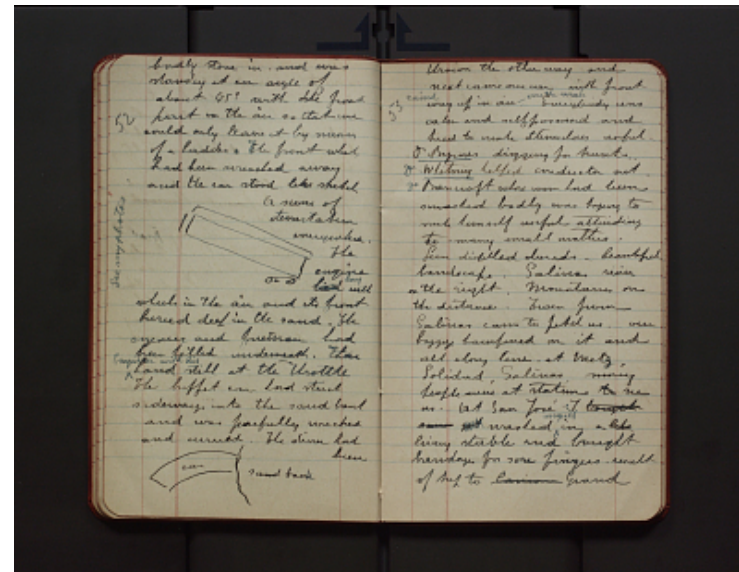 52
badly stove in and was
standing at an angle of
about 45° with the front
part in the air so that one
could only leave it by means
of a ladder. The front wheel
had been wrenched away
and the car stood like sketch
A scene of
devastation
everywhere.
The
engine
lay with
wheels in the air and its front
buried deep in the sand. The
engineer and fireman had
been killed underneath. Their
hand still at the throttle
The buffet car had stuck
sideways into the sand bank
and was fearfully wrecked
and curved. The stern had
been
car
sand bank
see my photos
53
thrown the other way and
next came our car with front
way up in air. Everybody was
calm and self possessed and
tried to make themselves useful.
digging for trunks.
Dr Whitney helped conductor out.
Dr Bancroft whose room had been
smashed badly was trying to
make himself useful attending
to many small matters.
Sun distilled clouds. Beautiful
landscape. Salinas river
on the right. Mountains in
the distance. Train from
Salinas came to fetch us. our
baggage transferred on it and
all along line, at Metz,
Solidad, Salinas, many
people were at station to see
us. At San José
washed in a
livery stable and bought
bandage for sore fingers result
of help to grand